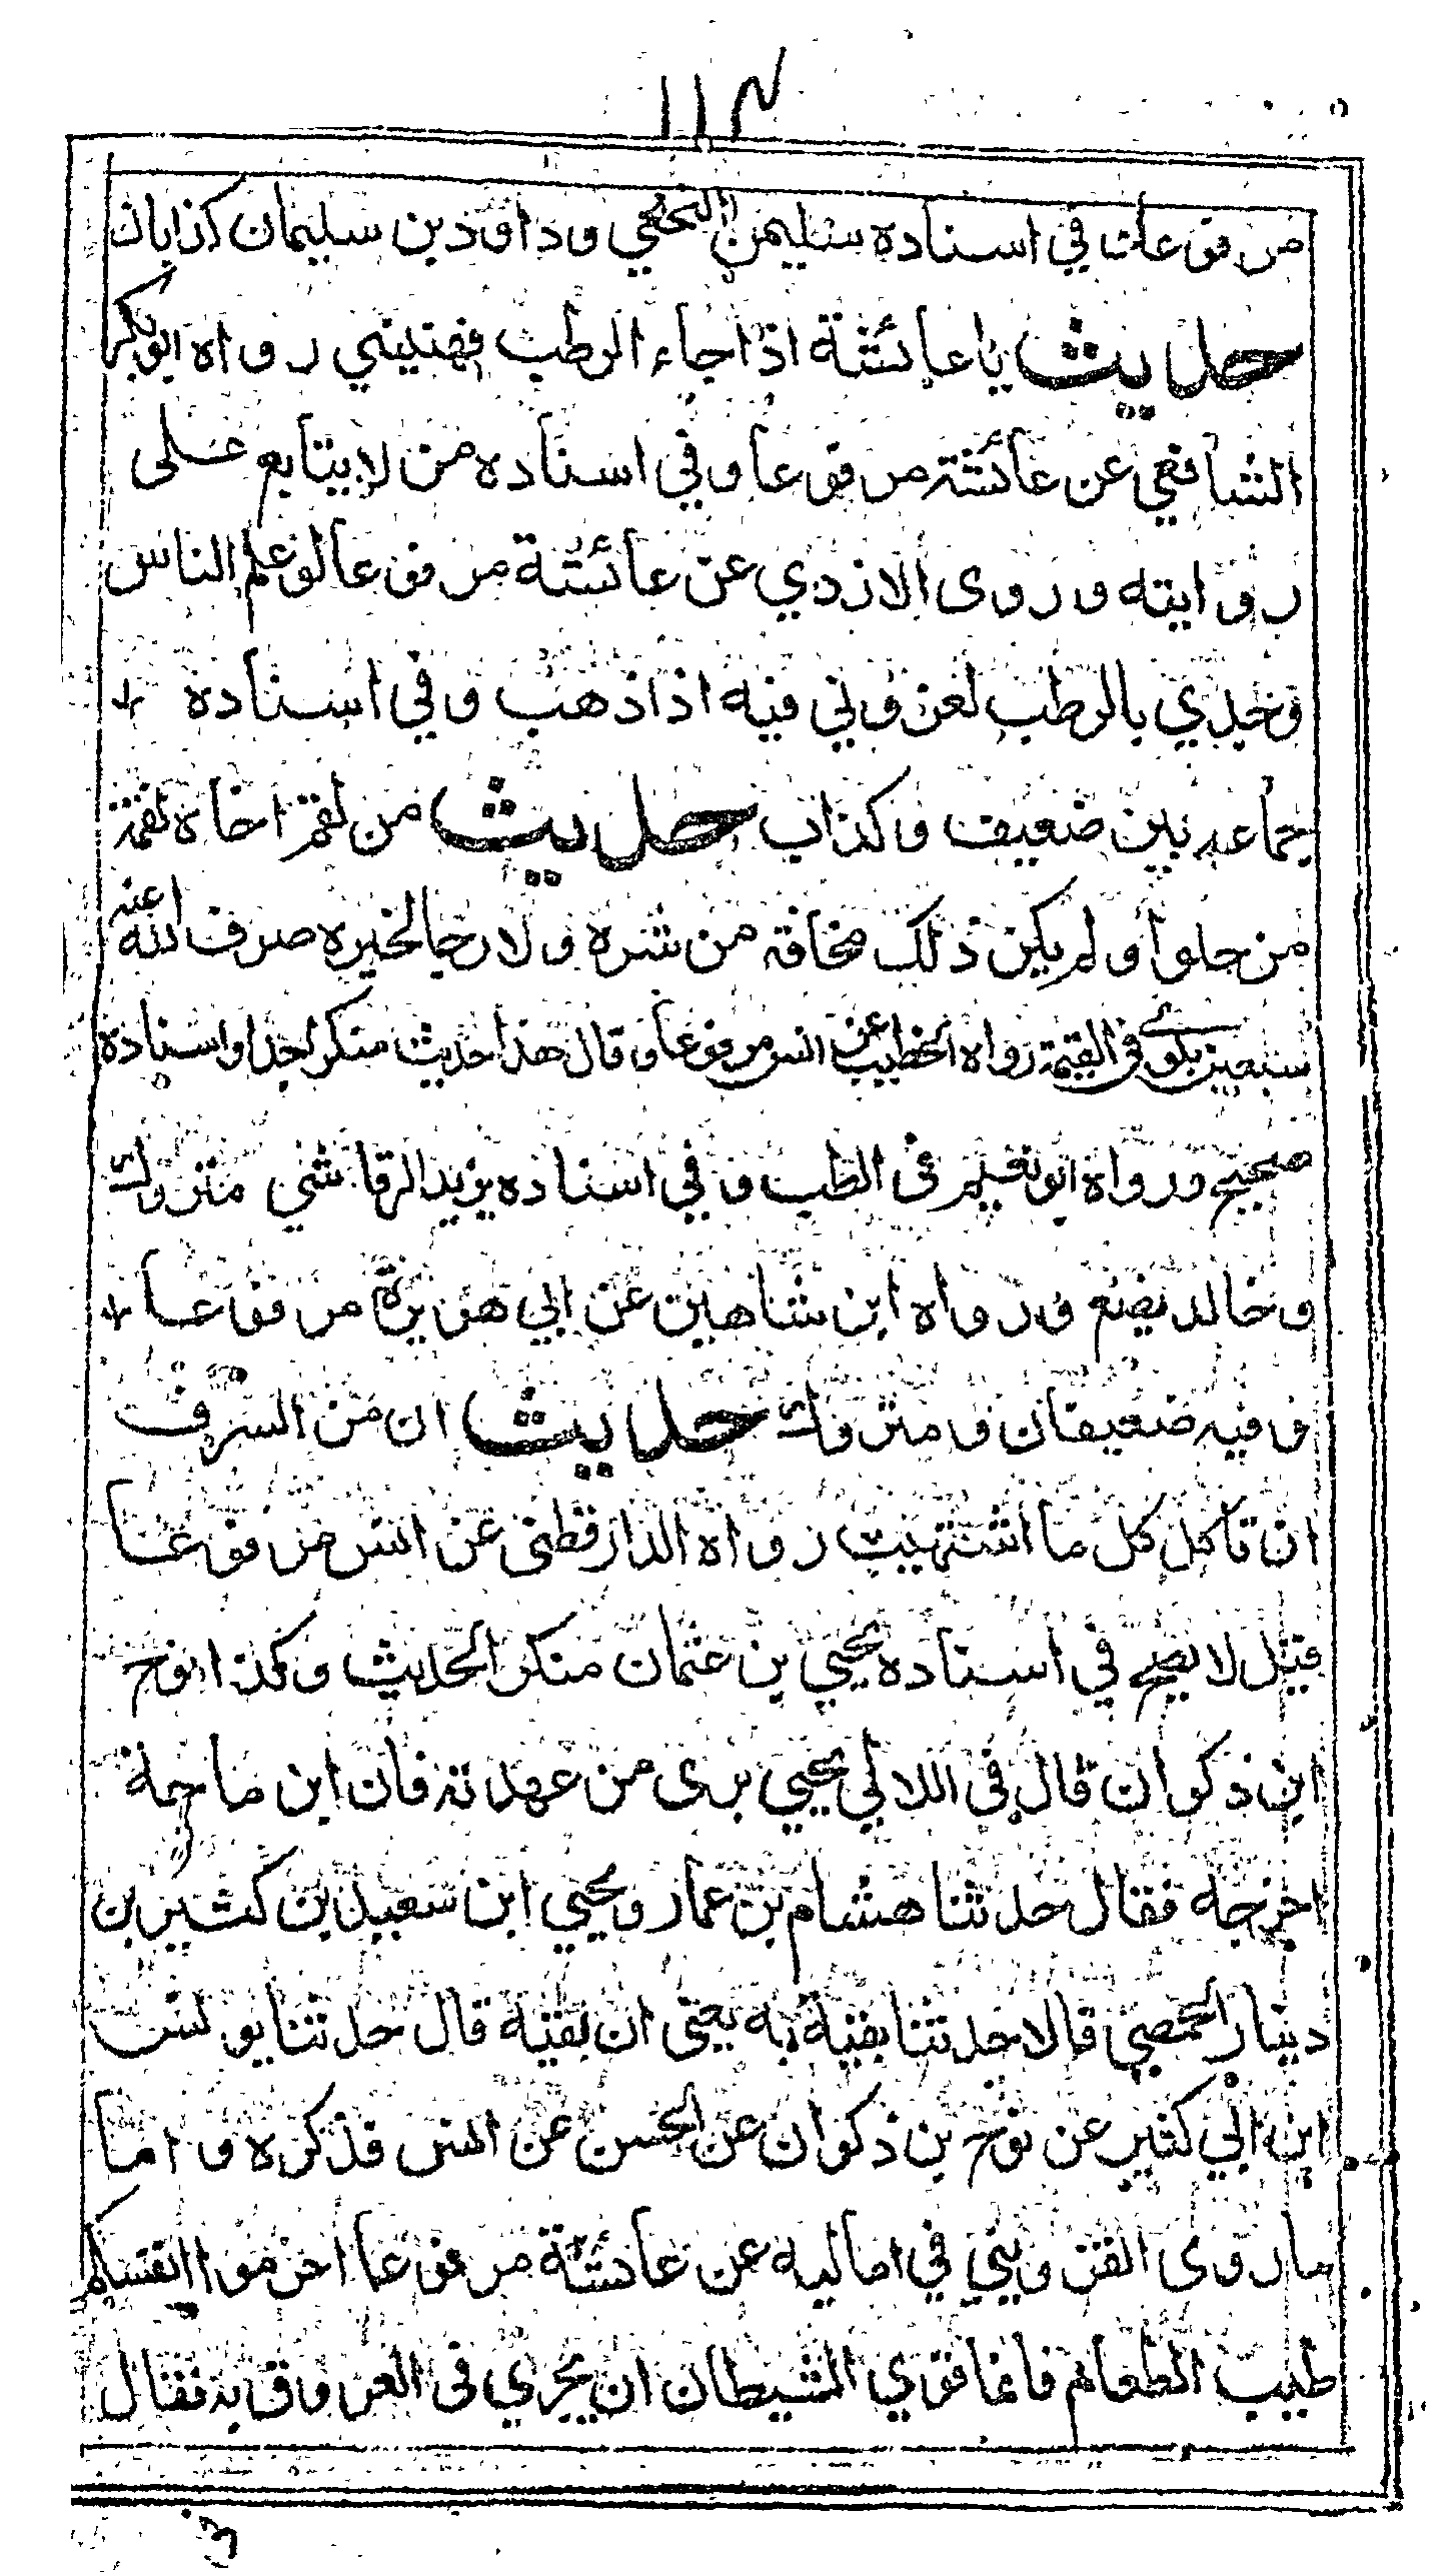 ١١٣
مرفوعا في اسناده سليمن النخعي وداود بن سليمان كذابان
حديث يا عائشة اذا جاء الرطب فهنيني رواه ابو بكر
الشافعي عن عائشة مرفوعا وفي اسناده من لا يتابع على
روايته وروى الازدي عن عائشة مرفوعا لو علم الناس
وجدي بالرطب لعزوني فيه اذا ذهب وفي اسناده
جماعه بين ضعيف وكذاب حديث من لقم اخاه لقمة
من حلوا ولم يكن ذلك مخافة من شره ولا رجا لخيره صرف الله عنه
سبعين بلوى في القيمة رواه الخطيب عن انس مرفوعا وقال هذا حديث منكر جدا واسناده
صحيح ورواه ابو نعيم في الطب وفي اسناده يزيد الرقاشي متروك
وخالد يضع ورواه ابن شاهين عن ابي هريرة مرفوعا
وفيه ضعيفان ومتروك حديث ان من السرف
ان تاكل كل ما اشتهيت رواه الدارقطني عن انس مرفوعا
قيل لا يصح في اسناده يحيي بن عثمان منكر الحديث وكذا نوح
ابن ذكوان قال في اللالي يحيي بري من عهدته فان ابن ماجة
اخرجه فقال حدثنا هشام بن عمار ويحيي ابن سعيد بن كثير بن
دينار الحمصي قالا حدثنا بقية به يعني ان بقية قال حدثنا يوسف
ابن ابي كثير عن نوح بن ذكوان عن الحسن عن انس فذكره واما
ما روى القزويني في اماليه عن عائشة مرفوعا احرموا انفسكم
طيب الطعام فانما قوي الشيطان ان يجري في العروق به فقال